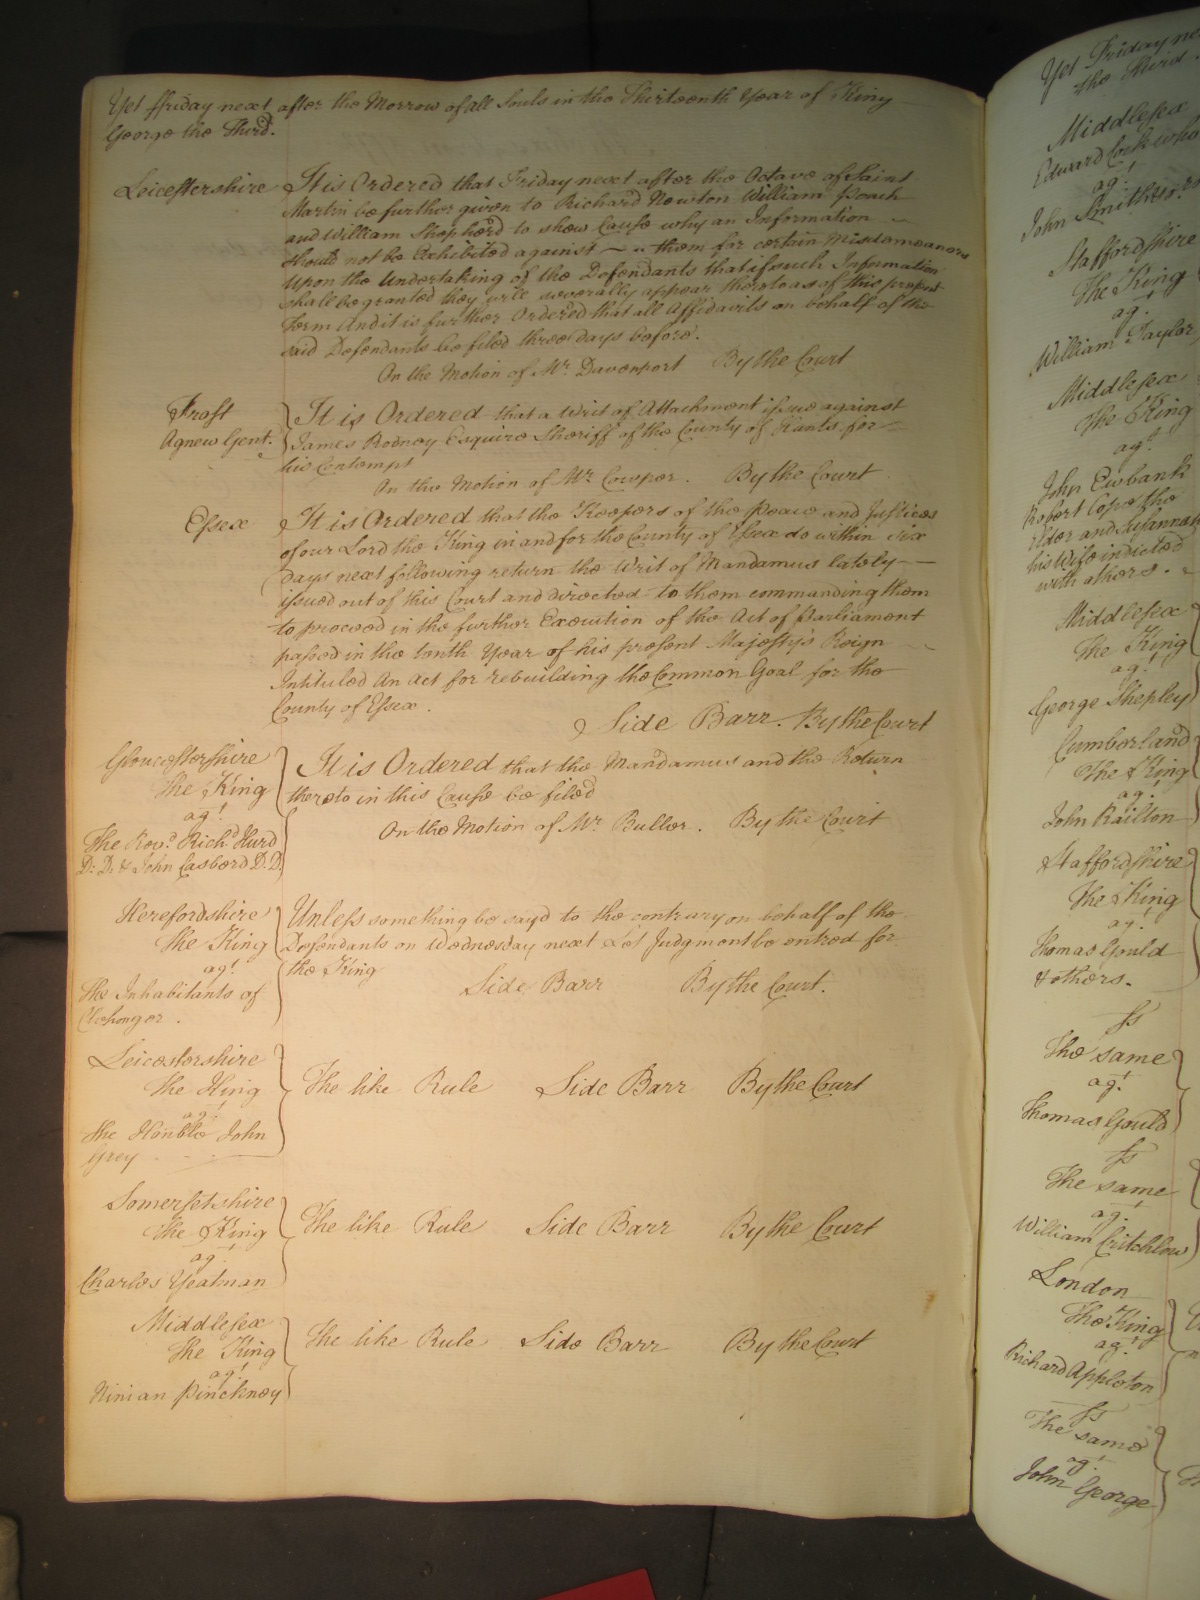 Yet ffriday next after the Morrow of all Souls in the Thirteenth Year of King
George the Third.
Leicestershire It is Ordered that Friday next after the Octave of Saint
Martin be further given to Richard Newton William Pouch
and William Shepherd to show Cause why an Information
should not be Exhibited against them for certain Misdemeanors
Upon the Undertaking of the Defendants that if such Information
shall be granted they will severally appear thereto as of this present
Term And it is further Ordered that all Affidavits on behalf of the
said Defendants be filed three days before.
On the Motion of Mr. Davenport By the Court
Frost
Agnew Gent.
It is Ordered that a Writ of Attachment issue against
James Rodney Esquire Sheriff of the County of Hants for
his Contempt
On the Motion of Mr. Cowper. By the Court
Essex It is Ordered that the Keepers of the Peace and Justices
of our Lord the King in and for the County of Essex do within six
days next following return the Writ of Mandamus lately
issued out of this Court and directed to them commanding them
to proceed in the further Execution of the Act of Parliament
passed in the tenth Year of his present Majesty's Reign
Intituled An Act for rebuilding the Common Goal for the
County of Essex.
Side Barr. By the Court
Gloucestershire
The King
agt.
The Revd. Richd. Hurd
D: D: & John Casberd D:D:
It is Ordered that the Mandamus and the Return
thereto in this Cause be filed
On the Motion of Mr. Buller. By the Court
Herefordshire
The King
agt.
The Inhabitants of
Unless something be sayd to the contrary on behalf of the
Defendants on Wednesday next Let Judgment be entred for
the King
Side Barr By the Court.
Leicestershire
The King
agt.
The Honble John
Grey
The like Rule Side Barr By the Court
Somersetshire
The King
agt.
Charles Yeatman
The like Rule Side Barr By the Court
Middlesex
The King
agt.
Ninian Pinckney
The like Rule Side Barr By the Court
Yet Friday
the Third
Middlesex
Edward
agt.
John Smithers
Staffordshire
The King
agt.
William Taylor
Middlesex
The King
agt.
John Ewbank
Robert Cope the
elder and Susannah
his Wife indicted
with others.
Middlesex
The King
agt.
George Shepley
Cumberland
The King
agt.
John Railton
Staffordshire
The King
agt.
Thomas Gould
& others.
ss
The same
agt.
Thomas Gould
ss
The same
agt.
William Critchlow
London
The King
agt.
Richard Appleton
ss
The same
agt.
John George